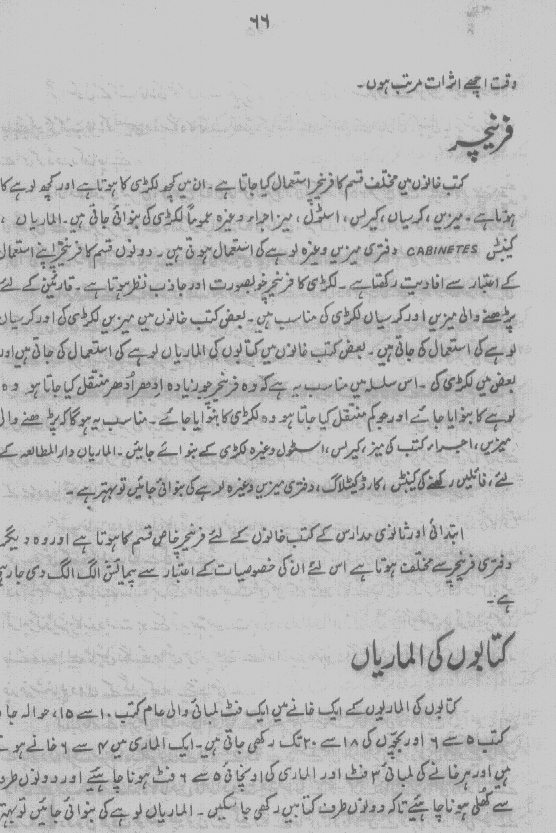 ۶۶
وقت اچھے اثرات مرتب ہوں۔
فرنیچر
کتب خانوں میں مختلف قسم کا فرنیچر استعمال کیا جاتا ہے۔ ان میں کچھ لکڑی کا ہوتا ہے اور کچھ لوہے کا
ہوتا ہے۔ میزیں، کرسیاں، کیرلس، اسٹول، میز اجراء وغیرہ عموماً لکڑی کی بنوائی جاتی ہیں۔ الماریاں،
کیبنٹس CABINETES دفتری میزیں وغیرہ لوہے کی استعمال ہوتی ہیں۔ دونوں قسم کا فرنیچر اپنے استعمال
کے اعتبار سے افادیت رکھتا ہے۔ لکڑی کا فرنیچر خوبصورت اور جاذب نظر ہوتا ہے۔ قارئین کے لئے
پڑھنے والی میزیں اور کرسیاں لکڑی کی مناسب ہیں۔ بعض کتب خانوں میں میزیں لکڑی کی اور کرسیاں
لوہے کی استعمال کی جاتی ہیں۔ بعض کتب خانوں میں کتابوں کی الماریاں لوہے کی استعمال کی جاتی ہیں اور
بعض میں لکڑی کی۔ اس سلسلہ میں مناسب یہ ہے کہ وہ فرنیچر جو زیادہ اِدھر اُدھر منتقل کیا جاتا ہو وہ
لوہے کا بنوایا جائے اور جو کم منتقل کیا جاتا ہو وہ لکڑی کا بنوایا جائے۔ مناسب یہ ہوگا کہ پڑھنے والی
میزیں، اجراء کتب کی میز، کیرلس، اسٹول وغیرہ لکڑی کے بنوائے جائیں۔ الماریاں دارالمطالعہ کے
لئے، فائلیں رکھنے کی کیبنٹ، کارڈ کیٹلاگ، دفتری میزیں وغیرہ لوہے کی بنوائی جائیں تو بہتر ہے۔
ابتدائی اور ثانوی مدارس کے کتب خانوں کے لئے فرنیچر خاص قسم کا ہوتا ہے اور وہ دیگر
دفتری فرنیچر سے مختلف ہوتا ہے اس لئے ان کی خصوصیات کے اعتبار سے پیمائش الگ الگ دی جارہی
ہے۔
کتابوں کی الماریاں
کتابوں کی الماریوں کے ایک خانے میں ایک فٹ لمبائی والی عام کتب ۱۰ سے ۱۵، حوالہ جاتی
کتب ۵ سے ۶ اور بچوں کی ۱۸ سے ۲۰ تک رکھی جاتی ہیں۔ ایک الماری میں ۴ سے ۶ خانے ہوتے
ہیں اور ہر خانے کی لمبائی ۳ فٹ اور الماری کی اونچائی ۵ سے ۶ فٹ ہونا چاہئیے اور دونوں طرف
سے کُھلی ہونا چاہئیے تاکہ دونوں طرف کتابیں رکھی جاسکیں۔ الماریاں لوہے کی بنوائی جائیں تو بہتر